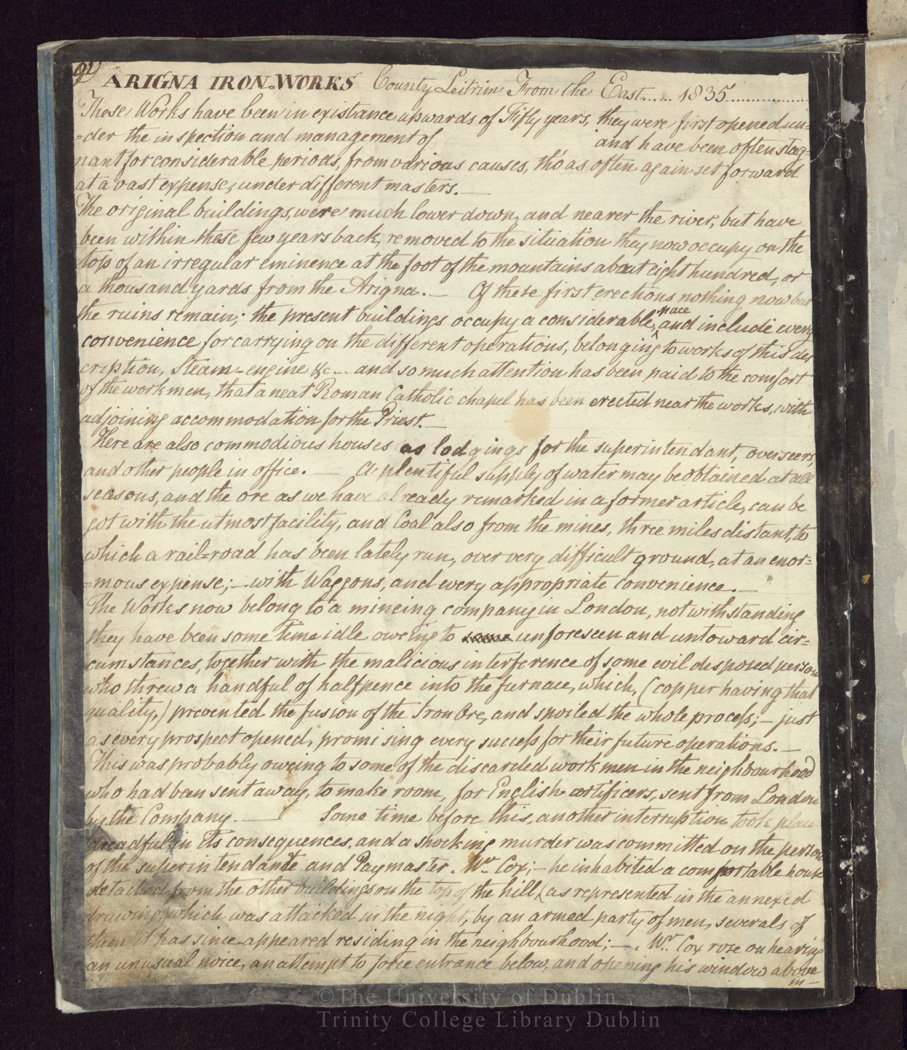 91) ARIGNA IRON-WORKS County Leitrim From the East..... 1835...............
These Works have been in existance upwards of Fifty years, they were first opened un-
-der the inspection and management of and have been often stag-
nant for considerable periods, from various causes, tho' as often again set forward
at a vast expense; under different masters.—
The original buildings, were much lower down, and nearer the river, but have
been within these few years back, removed to the situation they now occupy on the
top of an irregular eminence at the foot of the mountains about eight hundred, or
a thousand yards from the Arigna.— Of these first erections nothing now but
the ruins remain; the present buildings occupy a considerable space and include every
convenience for carrying on the different operations, belonging to works of this des
cription, Steam-engine &c... and so much attention has been paid to the comfort
of the workmen, that a neat Roman Catholic chapel has been erected near the works, with
adjoining accommodation for the Priest.—
Here are also commodious houses as lodgings for the superintendant, overseers,
and other people in office.— A plentiful supply of water may be obtained at all
seasons, and the ore as we have already remarked in a former article, can be
got with the utmost facility, and Coal also from the mines, three miles distant, to
which a rail-road has been lately run, over very difficult ground, at an enor-
-mous expense;- with Waggons, and every appropriate convenience.—
The Works now belong to a mineing company in London, notwithstanding
they have been some time idle oweing to unforeseen and untoward cir-
cumstances, together with the malicious interference of some evil disposed person
who threw a handful of halfpence into the furnace, which, (copper having that
quality,) prevented the fusion of the Iron Ore, and spoiled the whole process;- just
as every prospect opened, promising every success for their future operations.—
This was probably oweing to some of the discarded workmen in the neighbourhood
who had been sent away, to make room, for English artificers, sent from London
by the Company.— Some time before this, another interruption took place
dreadful in its consequences, and a shocking murder was committed on the person
of the superintendante and Paymaster Mr Cox;- he inhabited a comfortable house
detached from the other buildings on the top of the hill, (as represented in the annexed
drawing) which was attacked in the night, by an armed party of men, severals of
them it has since appeared residing in the neighbourhood;- Mr. Cox rose on hearing
an unusual noice, an attempt to force entrance below, and opening his window above
in—
©The University of Dublin
Trinity College Library Dublin